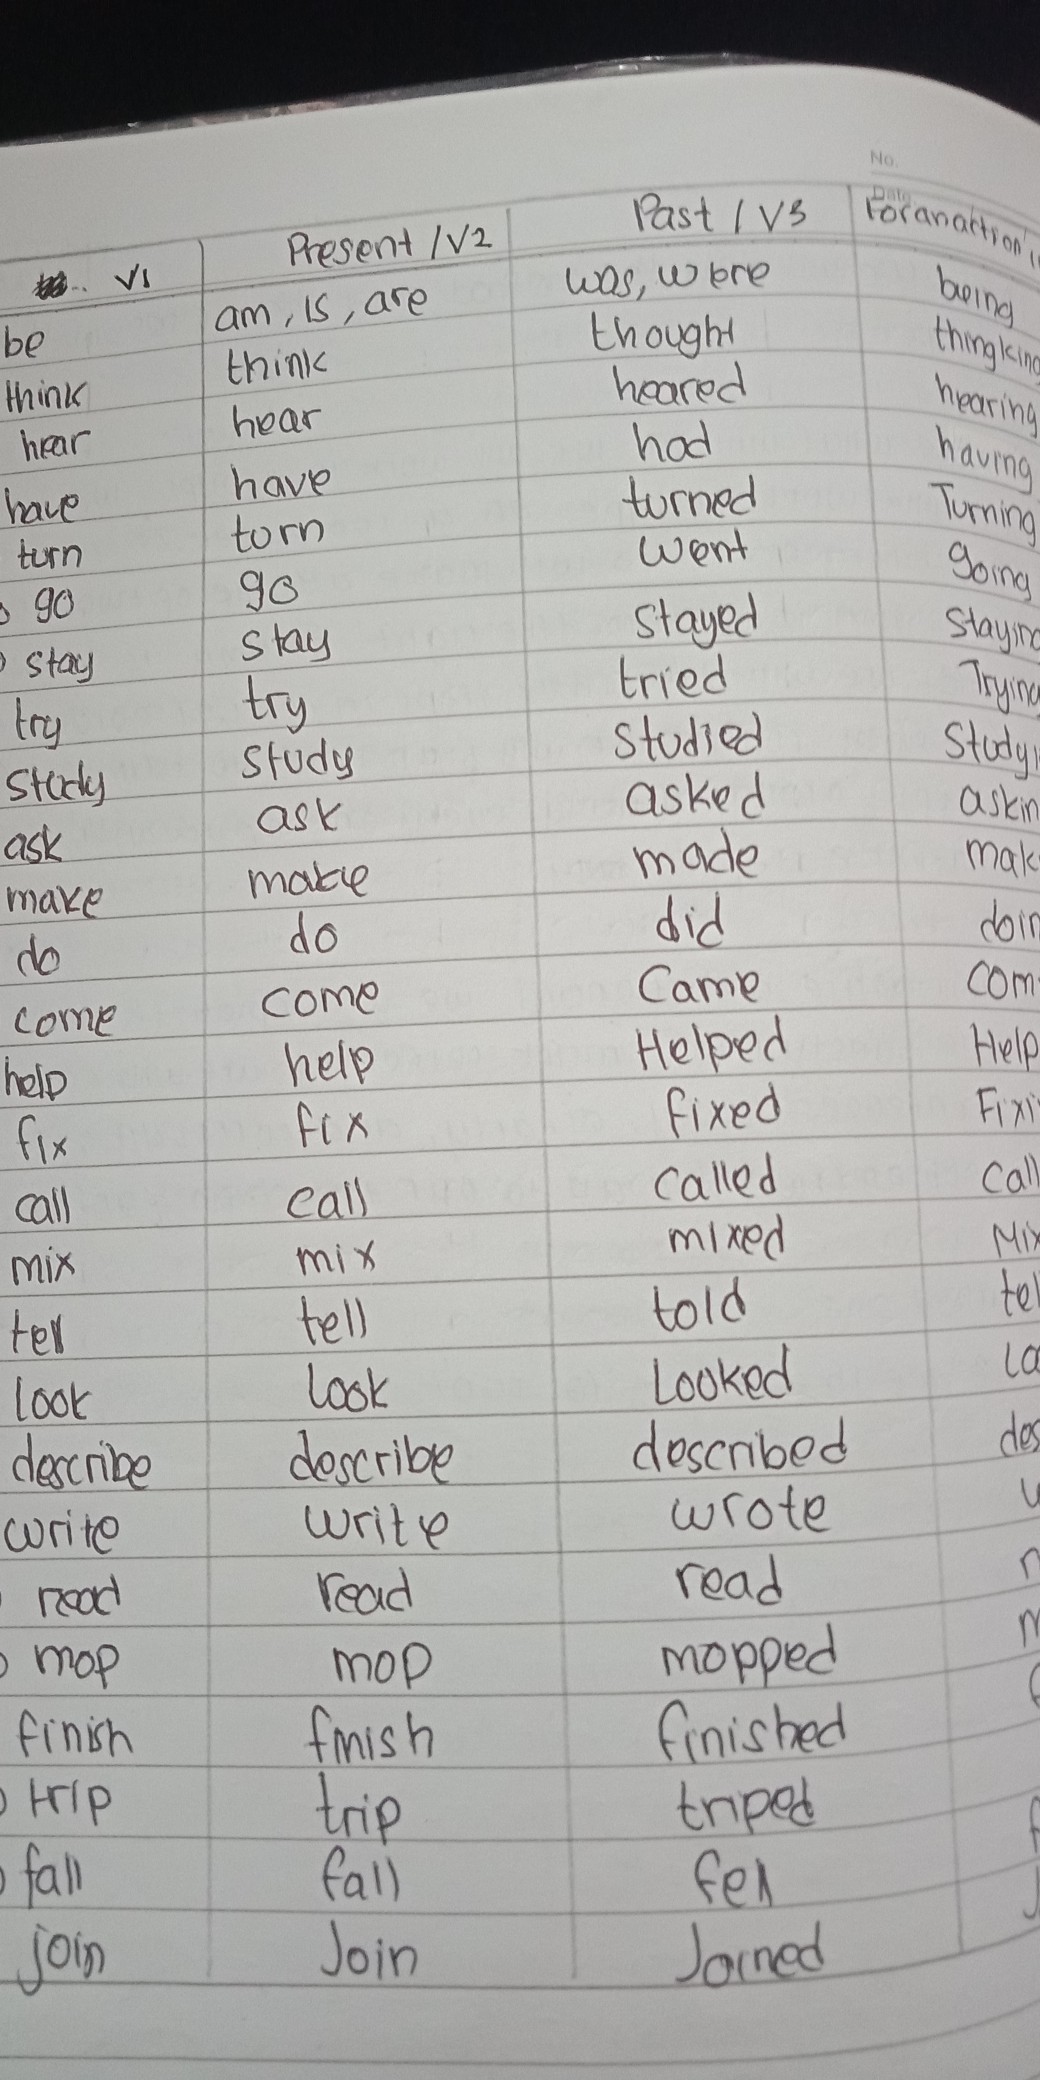 No.
Date
V1 Present / V2 Past / V3 For an action
be am, is, are was, were being
think think thought thingking
hear hear heared hearing
have have had having
turn torn turned Turning
go go went going
stay stay stayed staying
try try tried Trying
study study studied Study
ask ask asked askin
make make made mak
do do did doin
come come came com
help help Helped Help
fix fix fixed Fixi
call call called call
mix mix mixed Mix
tell tell told tel
look look Looked lo
describe describe described des
write write wrote
read read read
mop mop mopped m
finish finish finished f
trip trip triped
fall fall fell f
join Join Joined J